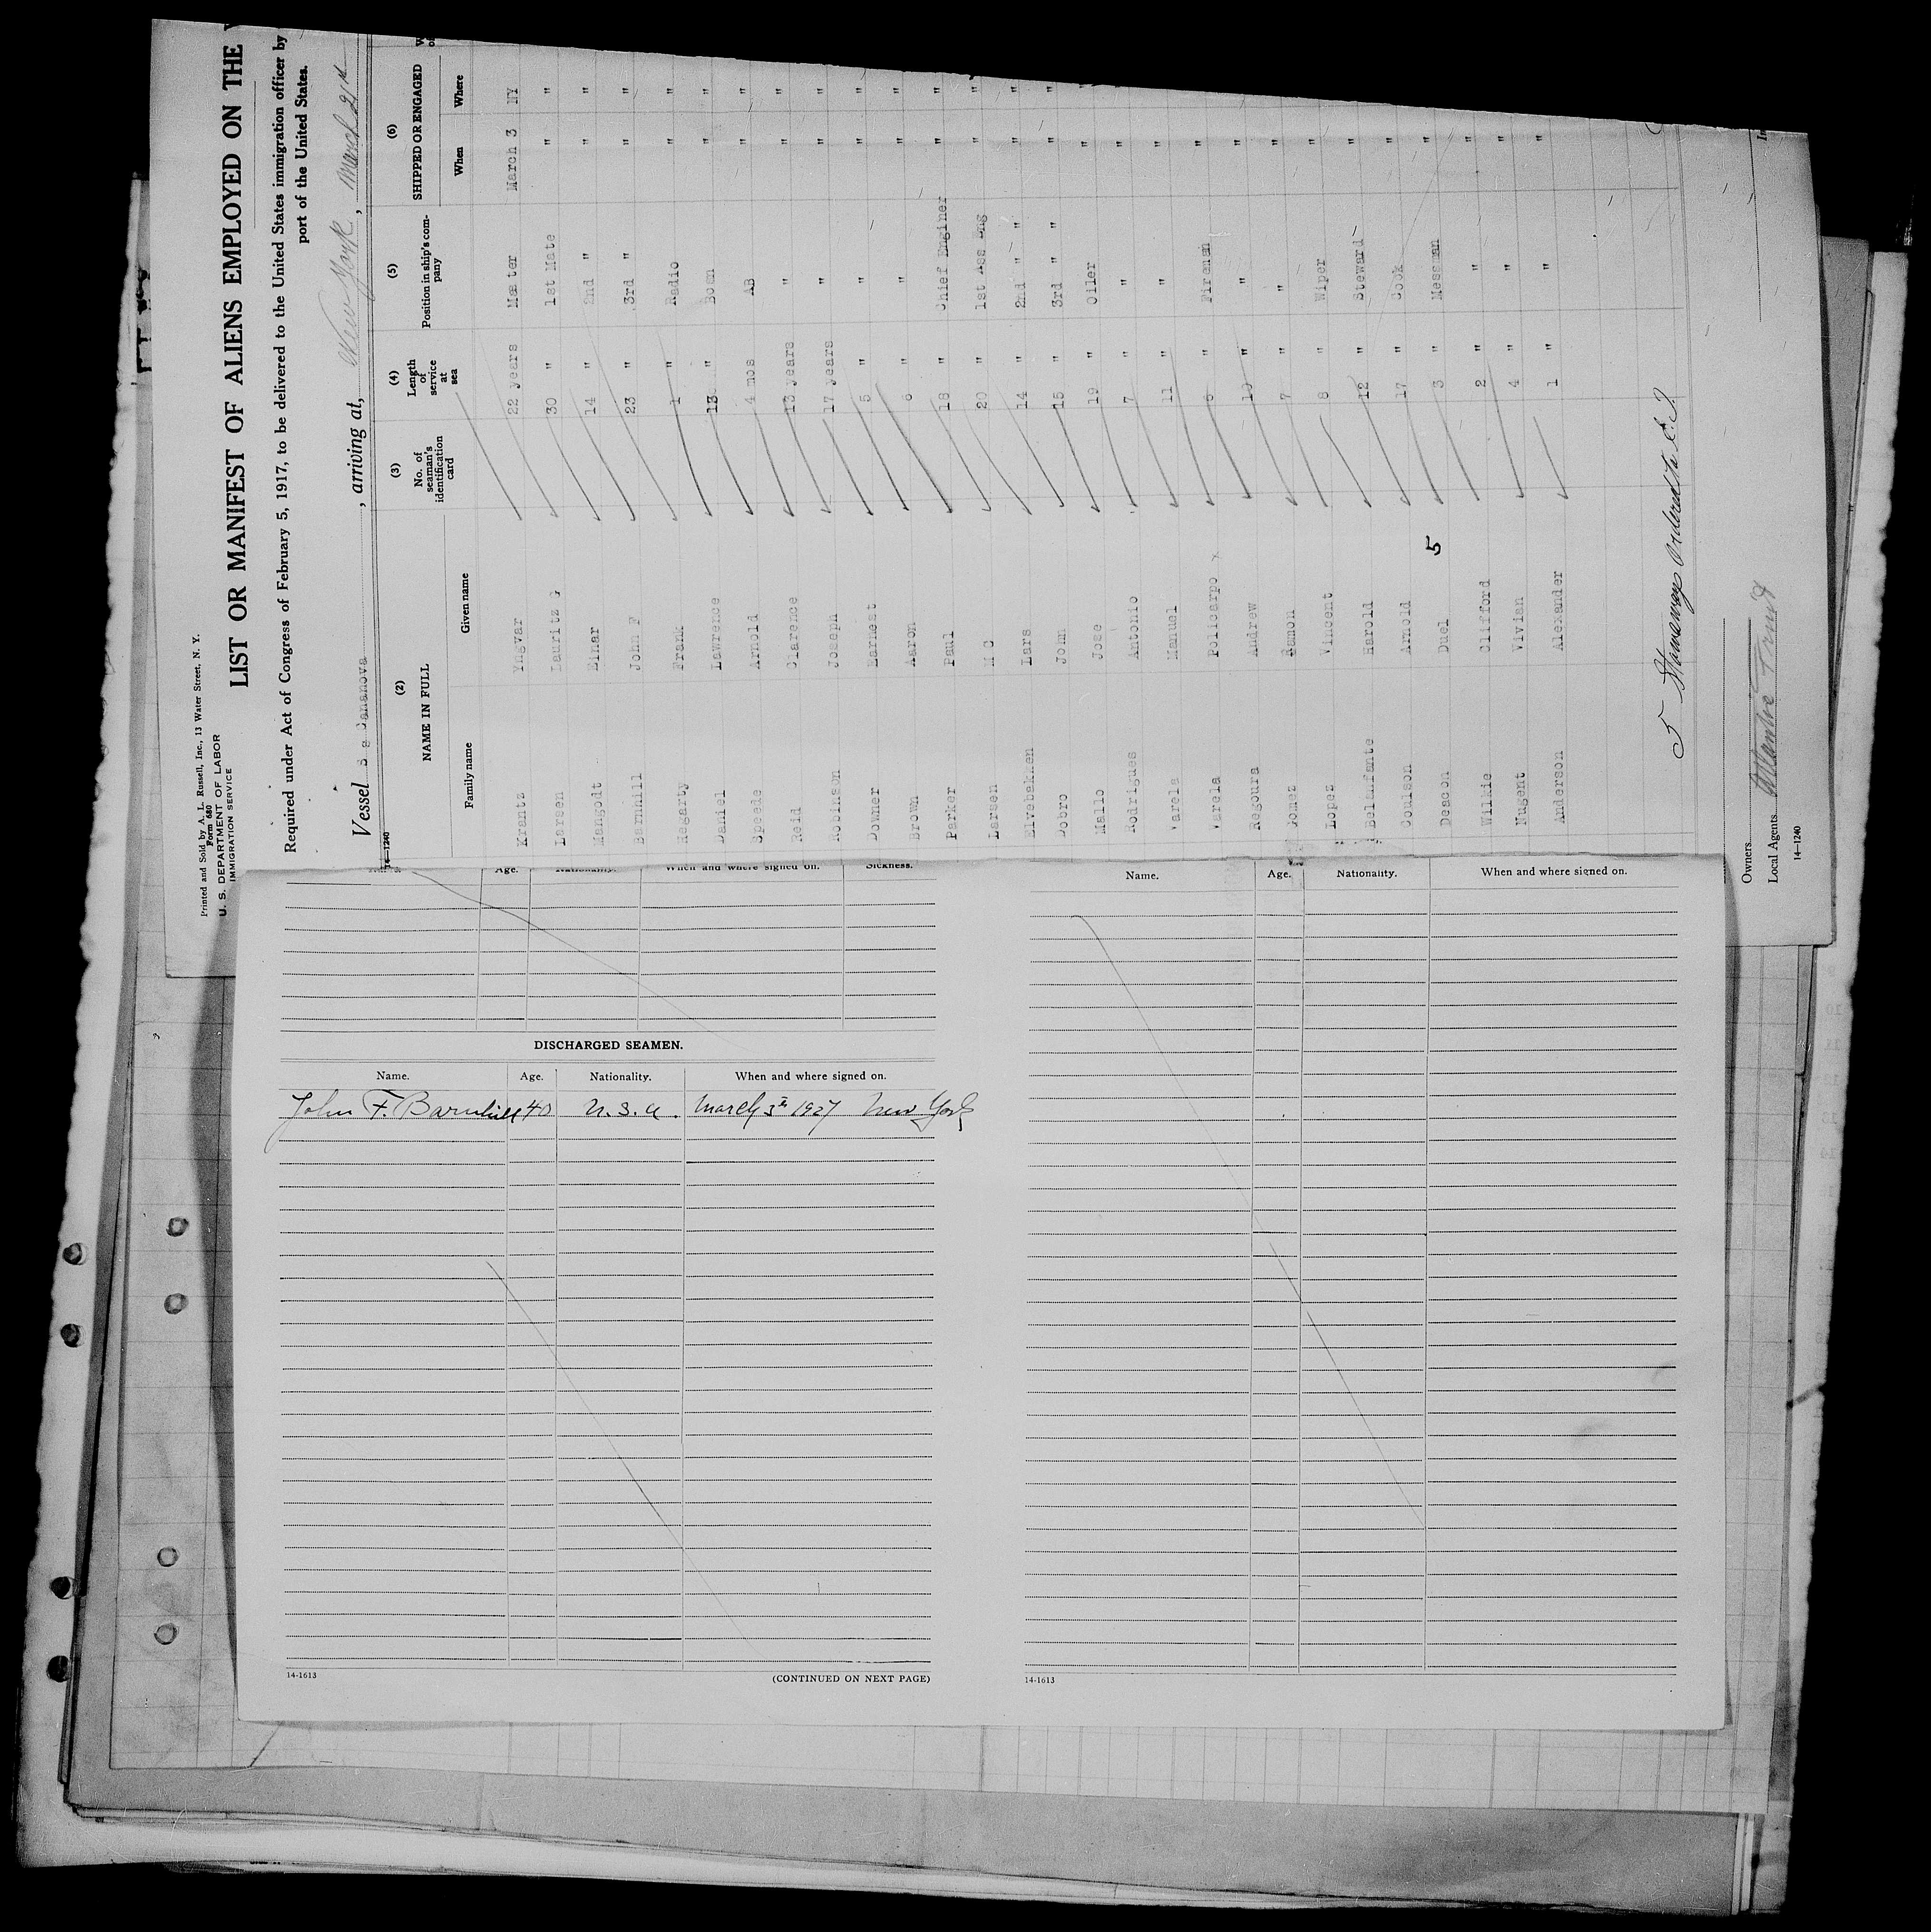 Printed and Sold by A. L. Russell, Inc., 13 Water Street, N. Y.
Form 680
U. S. DEPARTMENT OF LABOR
IMMIGRATION SERVICE
LIST OR MANIFEST OF ALIENS EMPLOYED ON THE
Required under Act of Congress of February 5, 1917, to be delivered to the United States immigration officer by
port of the United States.
Vessel S s Cananova, arriving at, New York, March 21st
14-1240
(2) (3) (4) (5) (6)
NAME IN FULL No. of seaman's identification card Length of service at sea Position in ship's company SHIPPED OR ENGAGED
Family name Given name When Where
Krantz Yngvar 22 years Master March 3 NY
Larsen Lauritz 30 " 1st Mate " "
Mangodt Einar 14 " 2nd " " "
Barnhill John F 23 " 3rd " " "
Hegarty Frank 1 " Radio " "
Daniel Lawrence 13 " Bosn " "
Speede Arnold 4 mos AB " "
Reid Clarence 13 years " " "
Robinson Joseph 17 years " " "
Downer Earnest 5 " " " "
Brown Aaron 6 " " " "
Parker Paul 18 " Chief Enginer " "
Larsen M C 20 " 1st Ass Eng " "
Elvebakken Lars 14 " 2nd " " " "
Dobro John 15 " 3rd " " " "
Mallo Jose 19 " Oiler " "
Rodrigues Antonio 7 " " "
Varela Manuel 11 " " "
Varela Policarpo x 6 " Fireman "
Regoura Andrew 10 " " "
Gomez Ramon 7 " " "
Lopez Vincent 8 " Wiper "
Belanfante Harold 12 " Steward "
Coulson Arnold 17 " Cook "
Deacon Duel 5 3 " Messman "
Wilkie Clifford 2 " " "
Nugent Vivian 4 " " "
Anderson Alexander 1 " " "
5 Stowaways Ordered to E.I.
Owners
Local Agents Atlantic Fruit
14-1240
Age. Nationality. When and where signed on. Sickness.
DISCHARGED SEAMEN.
Name. Age. Nationality. When and where signed on.
John F. Barnhill 40 U.S.A. March 3rd 1927 New York
14-1613 (CONTINUED ON NEXT PAGE)
Name. Age. Nationality. When and where signed on.
14-1613